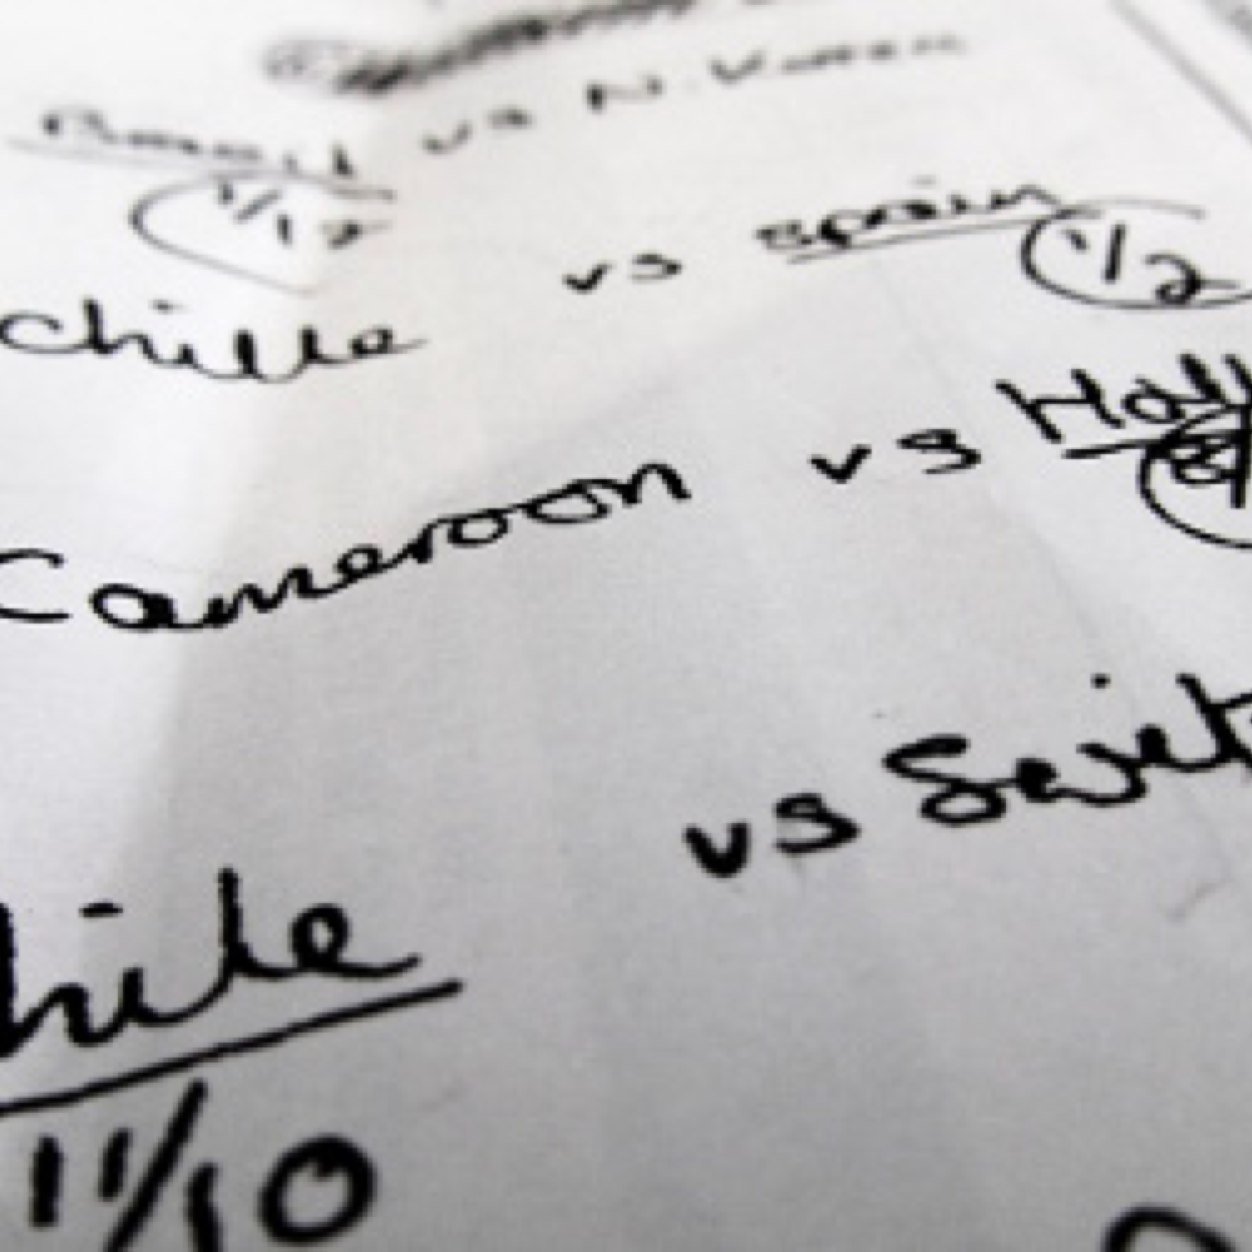 Brazil vs N. Korea
1/12
Chille vs Spain
1/2
Cameroon vs Holl
vs Swit
hile
11/10